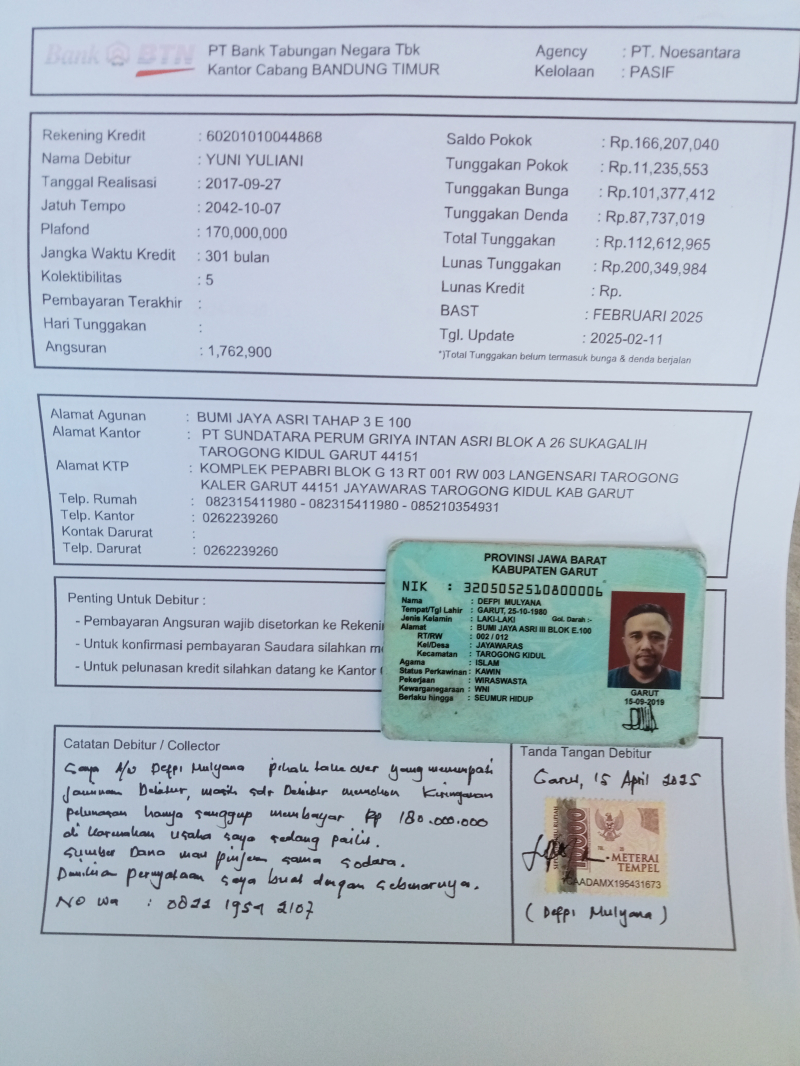 Bank BTN
PT Bank Tabungan Negara Tbk
Kantor Cabang BANDUNG TIMUR
Agency : PT. Noesantara
Kelolaan : PASIF
Rekening Kredit : 60201010044868
Nama Debitur : YUNI YULIANI
Tanggal Realisasi : 2017-09-27
Jatuh Tempo : 2042-10-07
Plafond : 170,000,000
Jangka Waktu Kredit : 301 bulan
Kolektibilitas : 5
Pembayaran Terakhir :
Hari Tunggakan :
Angsuran : 1,762,900
Saldo Pokok : Rp.166,207,040
Tunggakan Pokok : Rp.11,235,553
Tunggakan Bunga : Rp.101,377,412
Tunggakan Denda : Rp.87,737,019
Total Tunggakan : Rp.112,612,965
Lunas Tunggakan : Rp.200,349,984
Lunas Kredit : Rp.
BAST : FEBRUARI 2025
Tgl. Update : 2025-02-11
*)Total Tunggakan belum termasuk bunga & denda berjalan
Alamat Agunan : BUMI JAYA ASRI TAHAP 3 E 100
Alamat Kantor : PT SUNDATARA PERUM GRIYA INTAN ASRI BLOK A 26 SUKAGALIH
TAROGONG KIDUL GARUT 44151
Alamat KTP : KOMPLEK PEPABRI BLOK G 13 RT 001 RW 003 LANGENSARI TAROGONG
KALER GARUT 44151 JAYAWARAS TAROGONG KIDUL KAB GARUT
Telp. Rumah : 082315411980 - 082315411980 - 085210354931
Telp. Kantor : 0262239260
Kontak Darurat :
Telp. Darurat : 0262239260
Penting Untuk Debitur :
- Pembayaran Angsuran wajib disetorkan ke Rekenin
- Untuk konfirmasi pembayaran Saudara silahkan me
- Untuk pelunasan kredit silahkan datang ke Kantor
PROVINSI JAWA BARAT
KABUPATEN GARUT
NIK : 3205052510800006
Nama : DEFPI MULYANA
Tempat/Tgl Lahir : GARUT, 25-10-1980
Jenis Kelamin : LAKI-LAKI Gol. Darah :-
Alamat : BUMI JAYA ASRI III BLOK E.100
RT/RW : 002 / 012
Kel/Desa : JAYAWARAS
Kecamatan : TAROGONG KIDUL
Agama : ISLAM
Status Perkawinan : KAWIN
Pekerjaan : WIRASWASTA
Kewarganegaraan : WNI
Berlaku hingga : SEUMUR HIDUP
GARUT
15-09-2019
Catatan Debitur / Collector
Saya A/N Defpi Mulyana pihak take over yang menempati
jaminan Debitur, masih sdr Debitur memohon Keringanan
pelunasan hanya sanggup membayar Rp 180.000.000
di karenakan usaha saya sedang pailit.
Sumber Dana mau pinjem sama sodara.
Demikian pernyataan saya buat dengan sebenarnya.
NO WA : 0822 1954 2107
Tanda Tangan Debitur
Garut, 15 April 2025
METERAI
TEMPEL
(Defpi Mulyana)